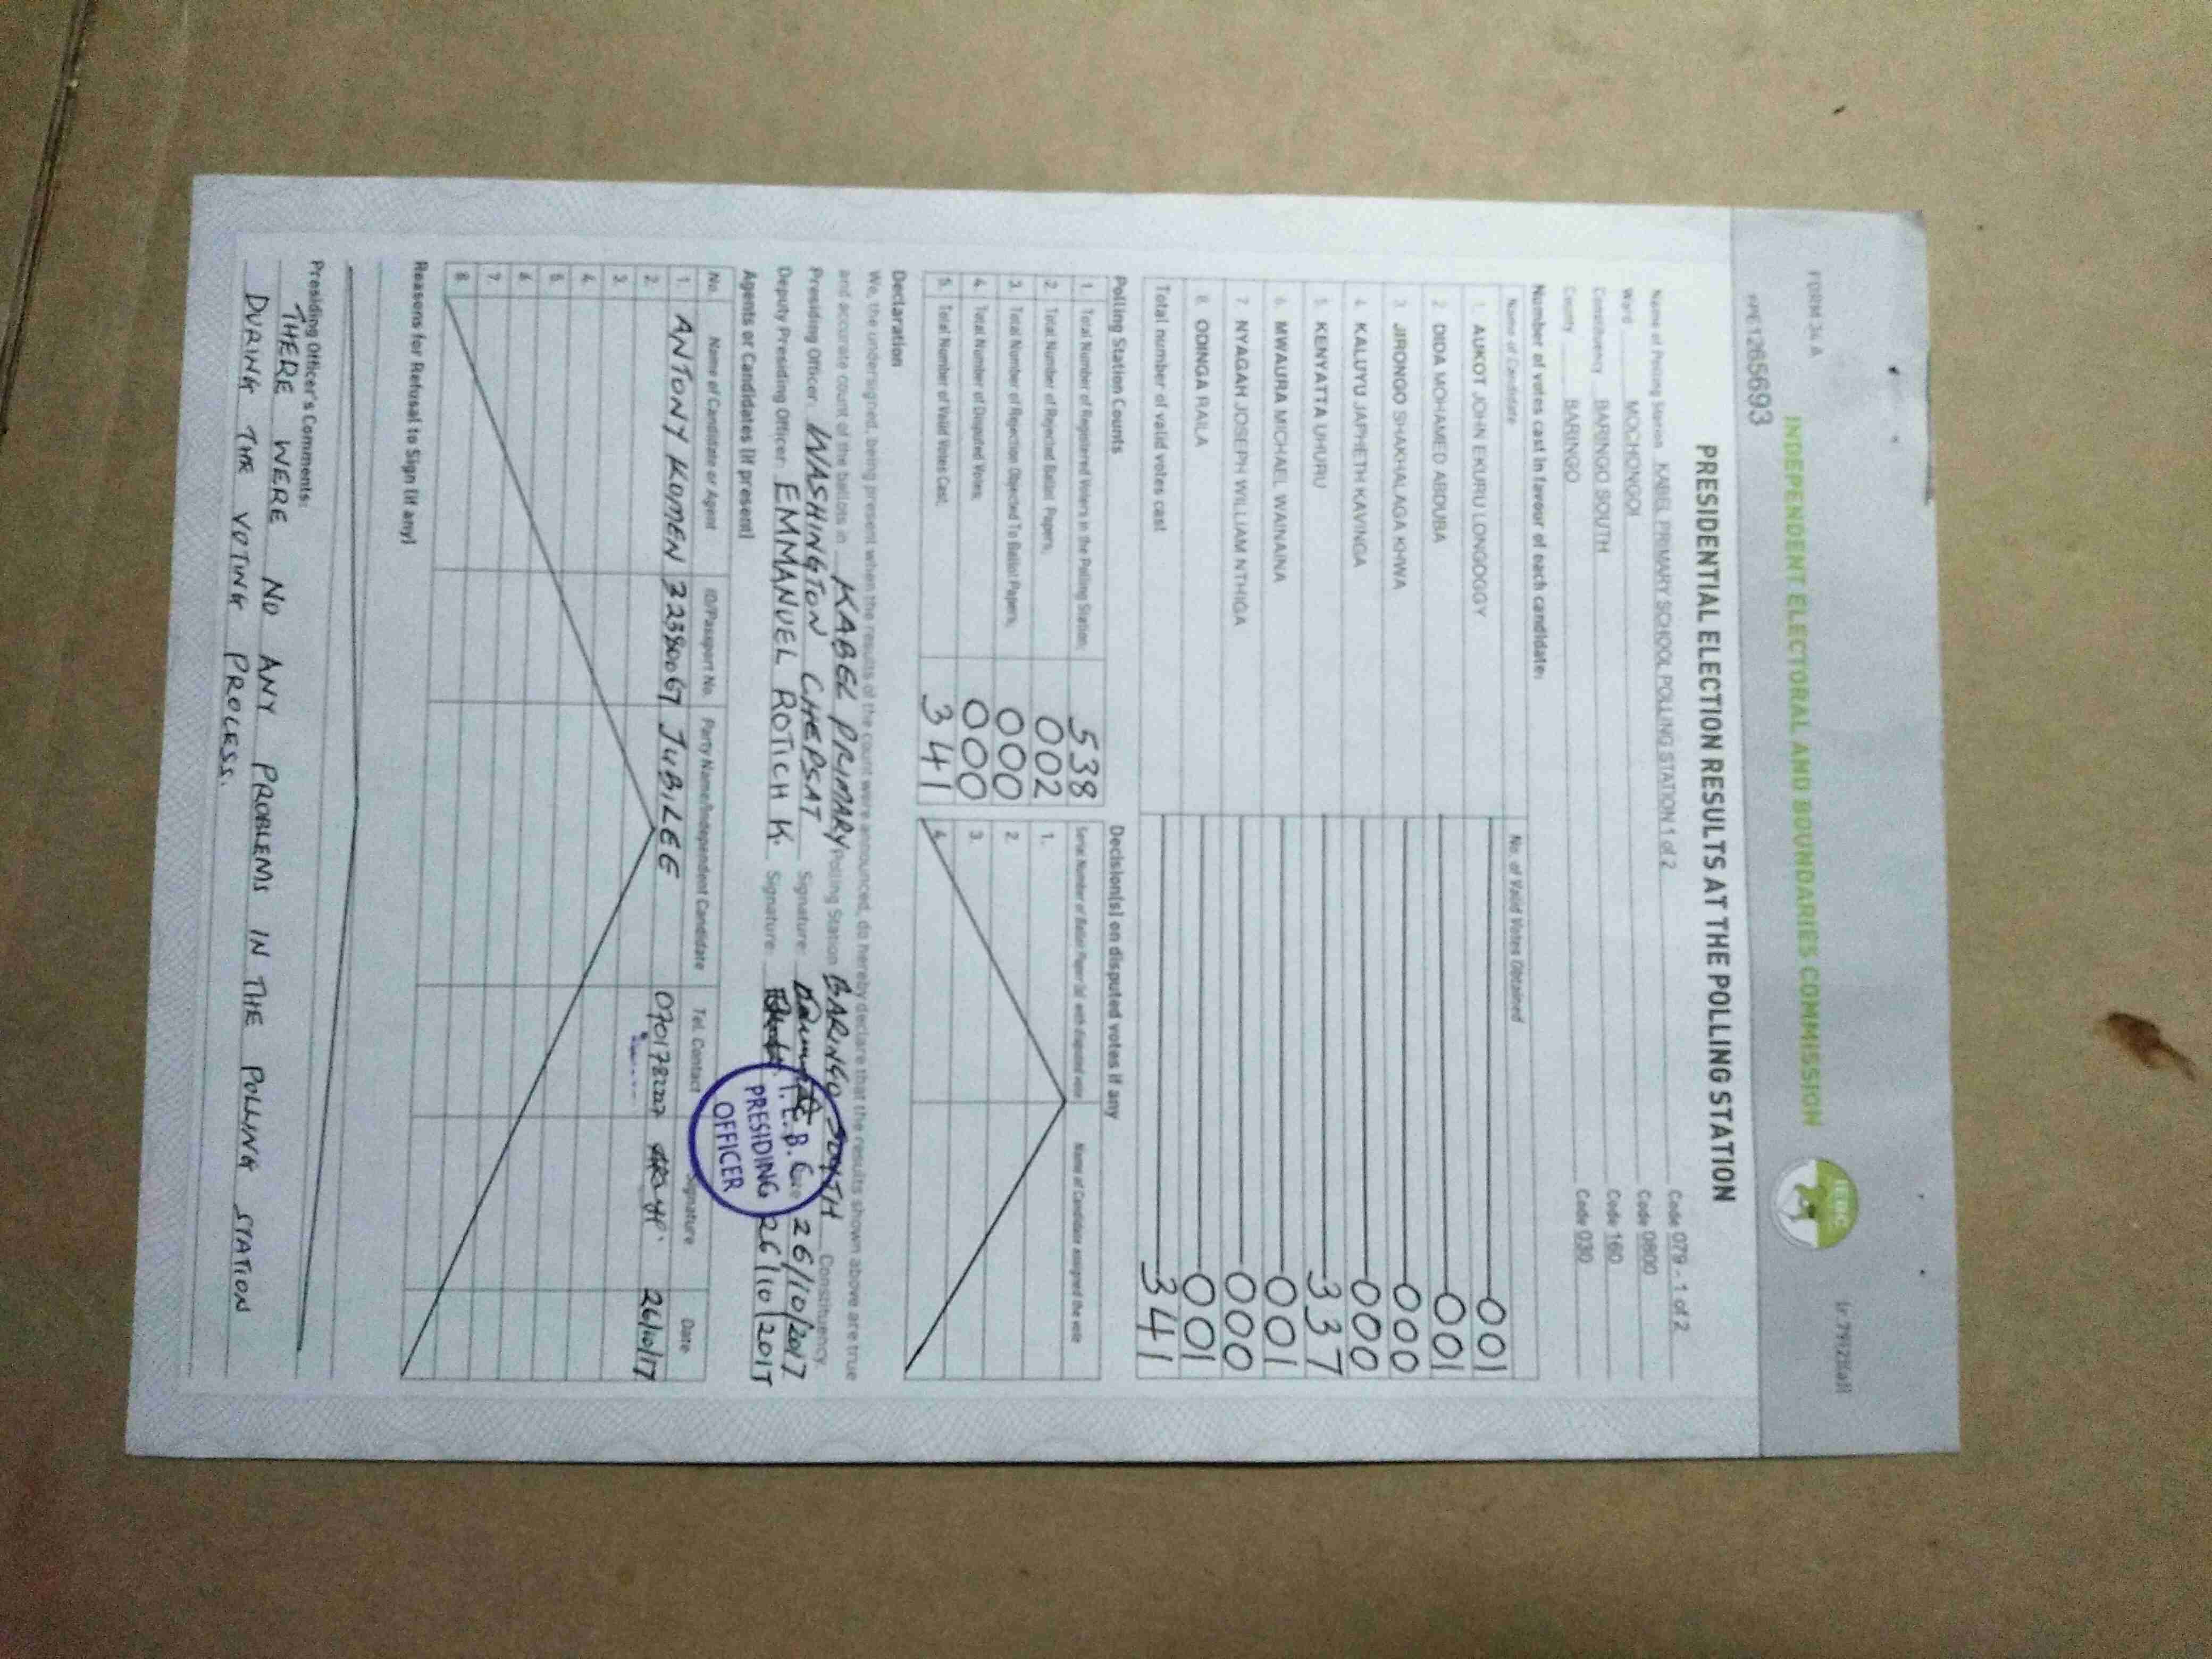 FORM 34 A
INDEPENDENT ELECTORAL AND BOUNDARIES COMMISSION
IEBC
PPE1265693
PRESIDENTIAL ELECTION RESULTS AT THE POLLING STATION
Name of Polling Station KABEL PRIMARY SCHOOL POLLING STATION 1 of 2 Code 079 - 1 of 2
Ward MOCHONGOI Code 0800
Constituency BARINGO SOUTH Code 160
County BARINGO Code 030
Number of votes cast in favour of each candidate:
Name of Candidate No. of Valid Votes Obtained
1. AUKOT JOHN EKURU LONGOGGY 001
2. DIDA MOHAMED ABDUBA 001
3. JIRONGO SHAKHALAGA KHWA 000
4. KALUYU JAPHETH KAVINGA 000
5. KENYATTA UHURU 337
6. MWAURA MICHAEL WAINAINA 001
7. NYAGAH JOSEPH WILLIAM NTHIGA 000
8. ODINGA RAILA 001
Total number of valid votes cast 341
Polling Station Counts
1. Total Number of Registered Voters in the Polling Station 538
2. Total Number of Rejected Ballot Papers 002
3. Total Number of Rejection Objected To Ballot Papers 000
4. Total Number of Disputed Votes 000
5. Total Number of Valid Votes Cast 341
Decision(s) on disputed votes if any
Serial Number of Ballot Paper (s) with disputed vote Name of Candidate assigned the vote
1.
2.
3.
4.
Declaration
We, the undersigned, being present when the results of the count were announced, do hereby declare that the results shown above are true
and accurate count of the ballots in KABEL PRIMARY Polling Station BARINGO SOUTH Constituency.
Presiding Officer: WASHINGTON CHEPSAT Signature: 26/10/2017
Deputy Presiding Officer: EMMANUEL ROTICH K. Signature: 26/10/2017
I.E.B.C
PRESIDING
OFFICER
Agents or Candidates (if present)
No. Name of Candidate or Agent ID/Passport No. Party Name/Independent Candidate Tel. Contact Signature Date
1. ANTONY KOMEN 32380067 JUBILEE 0701782227 26/10/17
2.
3.
4.
5.
6.
7.
8.
Reasons for Refusal to Sign (if any)
Presiding Officer's Comments:
THERE WERE NO ANY PROBLEMS IN THE POLLING STATION
DURING THR VOTING PROCESS.